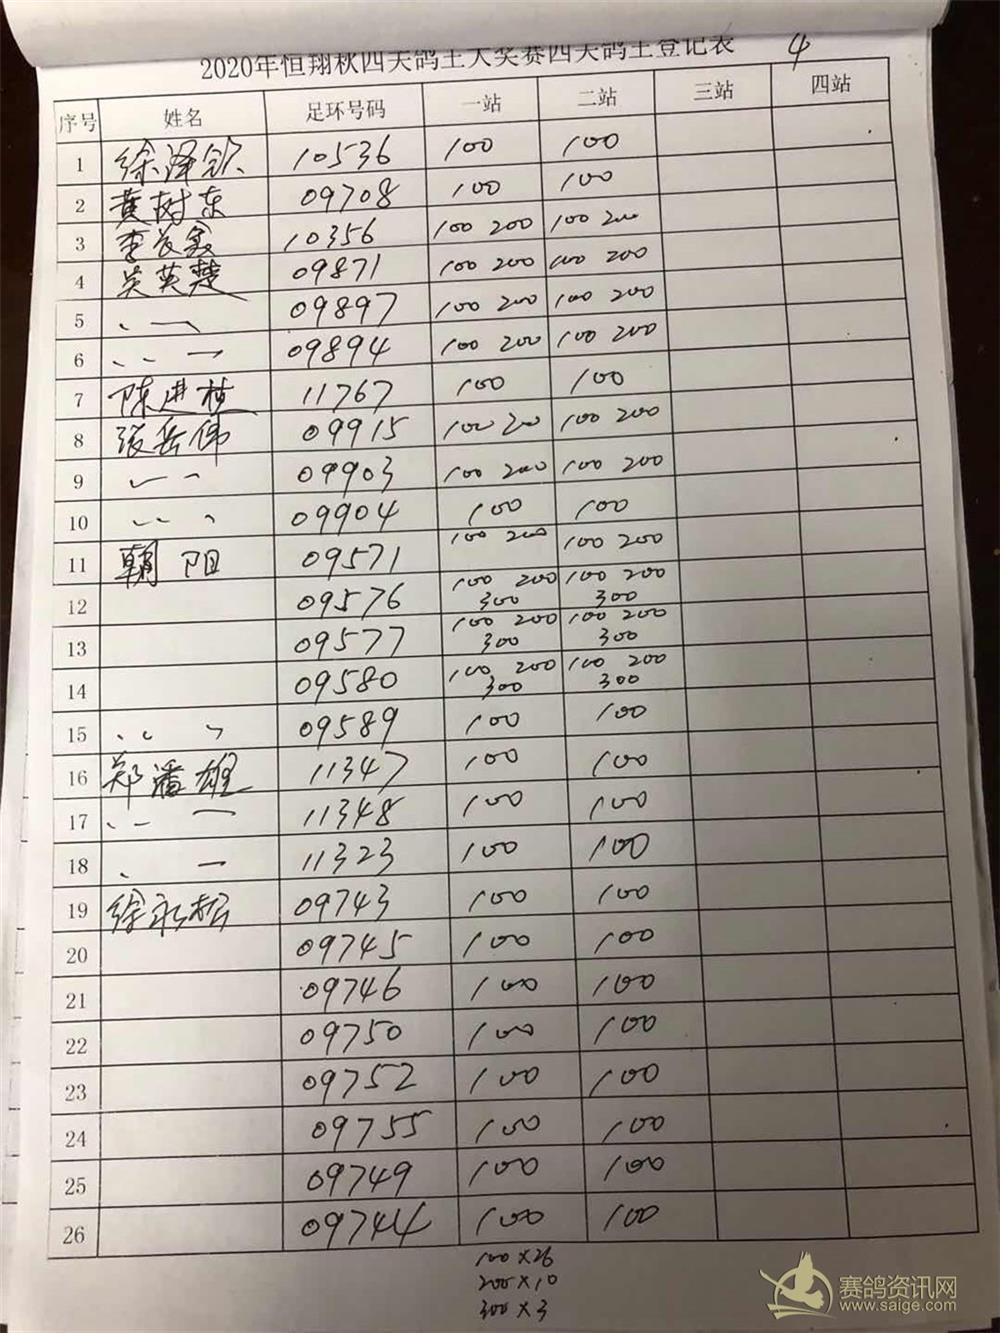 2020年恒翔秋四关鸽王大奖赛四关鸽王登记表 4
序号 姓名 足环号码 一站 二站 三站 四站
1 徐泽钦 10536 100 100
2 黄树东 09708 100 100
3 李 鑫 10356 100 200 100 200
4 吴英楚 09871 100 200 100 200
5 、、一 09897 100 200 100 200
6 、、一 09894 100 200 100 200
7 陈进植 11767 100 100
8 张岳伟 09915 100 200 100 200
9 、、、 09903 100 200 100 200
10 、、、 09904 100 100
11 朝阳 09571 100 200 100 200
12 09576 100 200 300 100 200 300
13 09577 100 200 300 100 200 300
14 09580 100 200 300 100 200 300
15 、、、 09589 100 100
16 郑潘雄 11347 100 100
17 、、一 11348 100 100
18 、一 11323 100 100
19 徐永松 09743 100 100
20 09745 100 100
21 09746 100 100
22 09750 100 100
23 09752 100 100
24 09755 100 100
25 09749 100 100
26 09744 100 100
100×26
200×10
300×3
赛鸽资讯网
www.saige.com